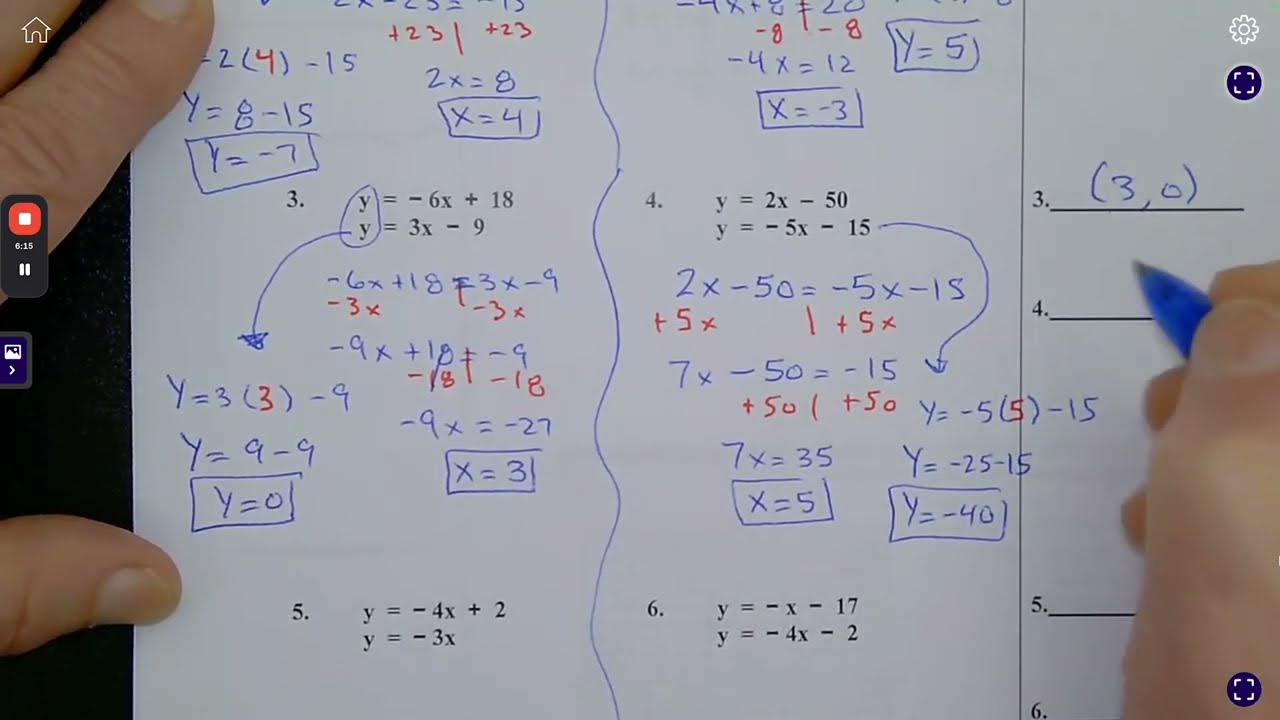 +23 | +23
-8 | -8
Y = 5
-2(4) - 15
2x = 8
-4x = 12
Y = 8 - 15
X = 4
X = -3
Y = -7
3. y = - 6x + 18
y = 3x - 9
-6x + 18 = 3x - 9
-3x | -3x
-9x + 18 = -9
-18 | -18
Y = 3(3) - 9
-9x = -27
Y = 9 - 9
X = 3
Y = 0
4. y = 2x - 50
y = - 5x - 15
2x - 50 = -5x - 15
+5x | +5x
7x - 50 = -15
+50 | +50
Y = -5(5) - 15
7x = 35
Y = -25 - 15
X = 5
Y = -40
3. (3, 0)
4.
5. y = - 4x + 2
y = - 3x
6. y = - x - 17
y = - 4x - 2
5.
6.
6:15